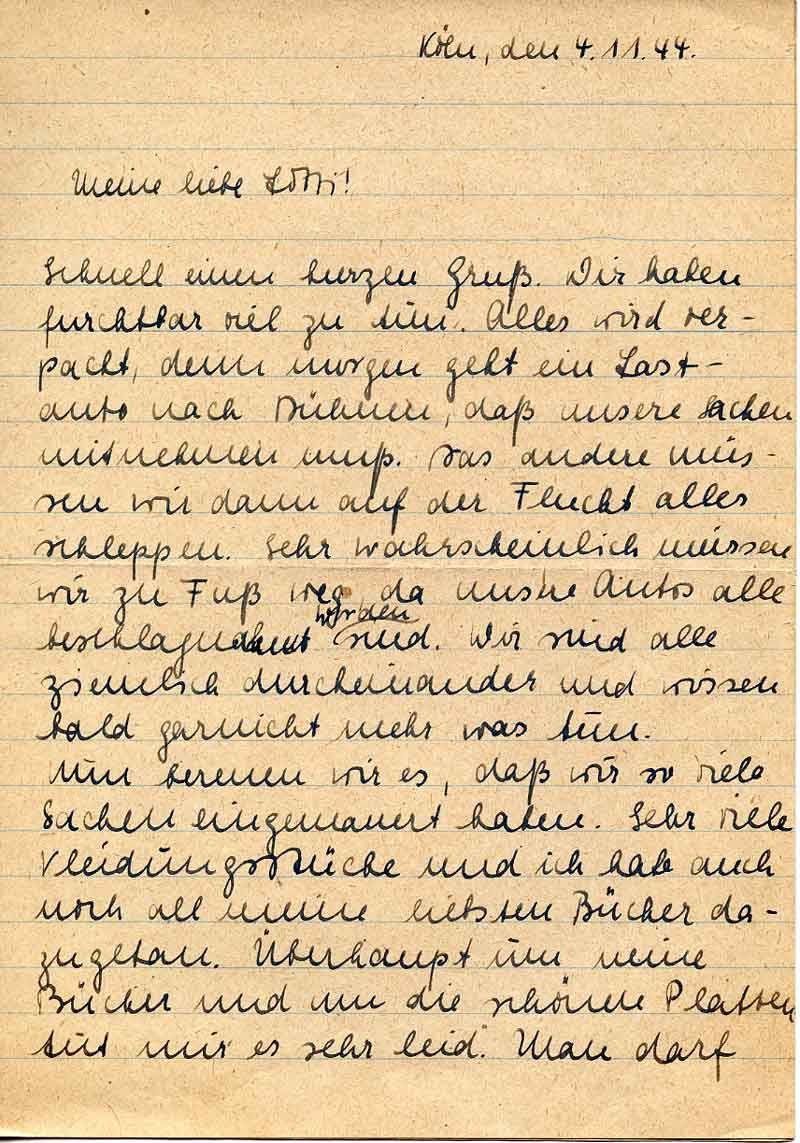 Köln, den 4.11.44.
Meine liebe Lotti!
Schnell einen kurzen Gruß. Wir haben
furchtbar viel zu tun. Alles wird ver-
packt, denn morgen geht ein Last-
auto nach daß unsere Sachen
mitnehmen muß. Das andere müs-
sen wir dann auf der Flucht alles
schleppen. Sehr wahrscheinlich müssen
wir zu Fuß weg, da unsre Autos alle
beschlagnahmt worden sind. Wir sind alle
ziemlich durcheinander und wissen
bald garnicht mehr was tun.
Nun bereuen wir es, daß wir so viele
Sachen eingemauert haben. Sehr viele
Kleidungsstücke und ich habe auch
noch all meine liebsten Bücher da-
zugetan. Überhaupt um meine
Bücher und um die schönen Platten
tut mir es sehr leid. Man darf